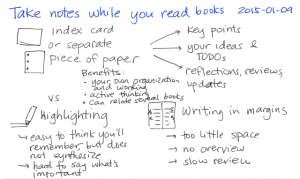 Take notes while you read books 2015-01-09
index card
or separate
piece of paper
key points
your ideas &
TODOs
reflections, reviews,
updates
Benefits:
• your own organization
and wording
• active thinking
• can relate several books
vs
highlighting
easy to think you'll
remember, but does
not synthesize
hard to say what's
important
Writing in margins
too little space
no overview
slow review